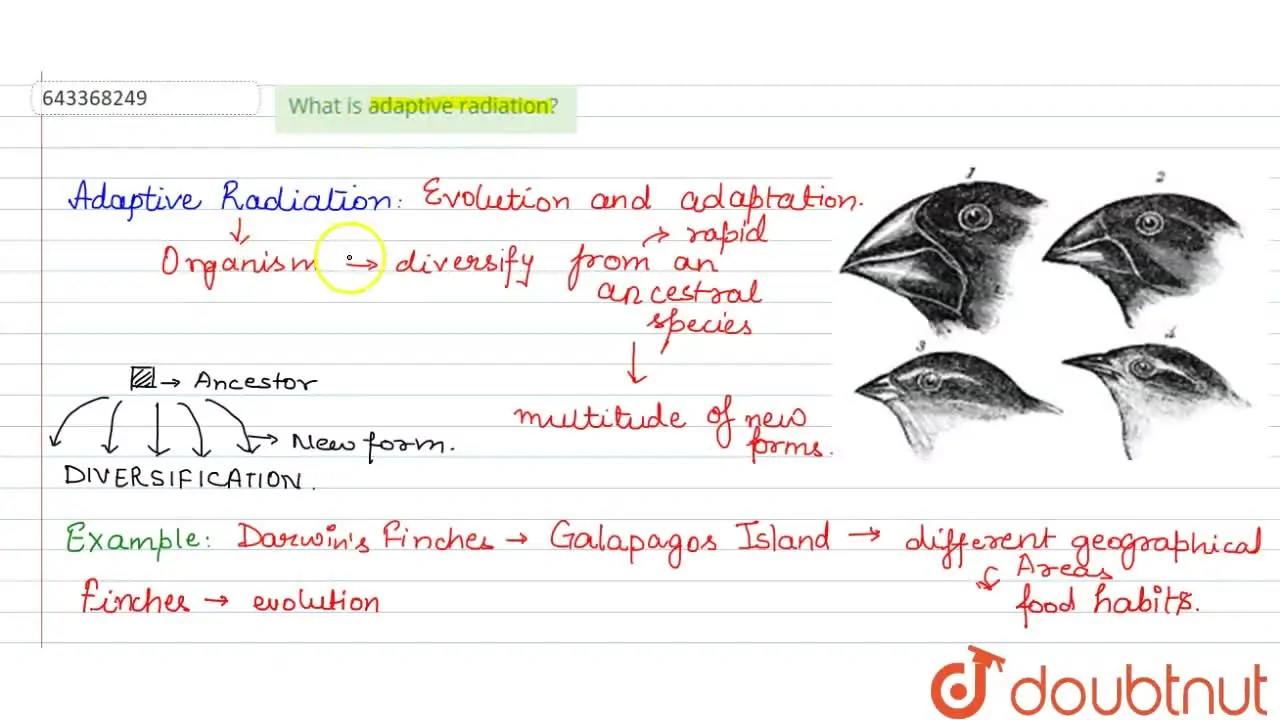 643368249
What is adaptive radiation?
1
2
Adaptive Radiation: Evolution and adaptation.
→ rapid
Organism → diversify from an
ancestral
species
3
4
▨ → Ancestor
multitude of new
forms.
→ New form.
DIVERSIFICATION.
Example: Darwin's Finches → Galapagos Island → different geographical
Areas
Finches → evolution
food habits.
doubtnut